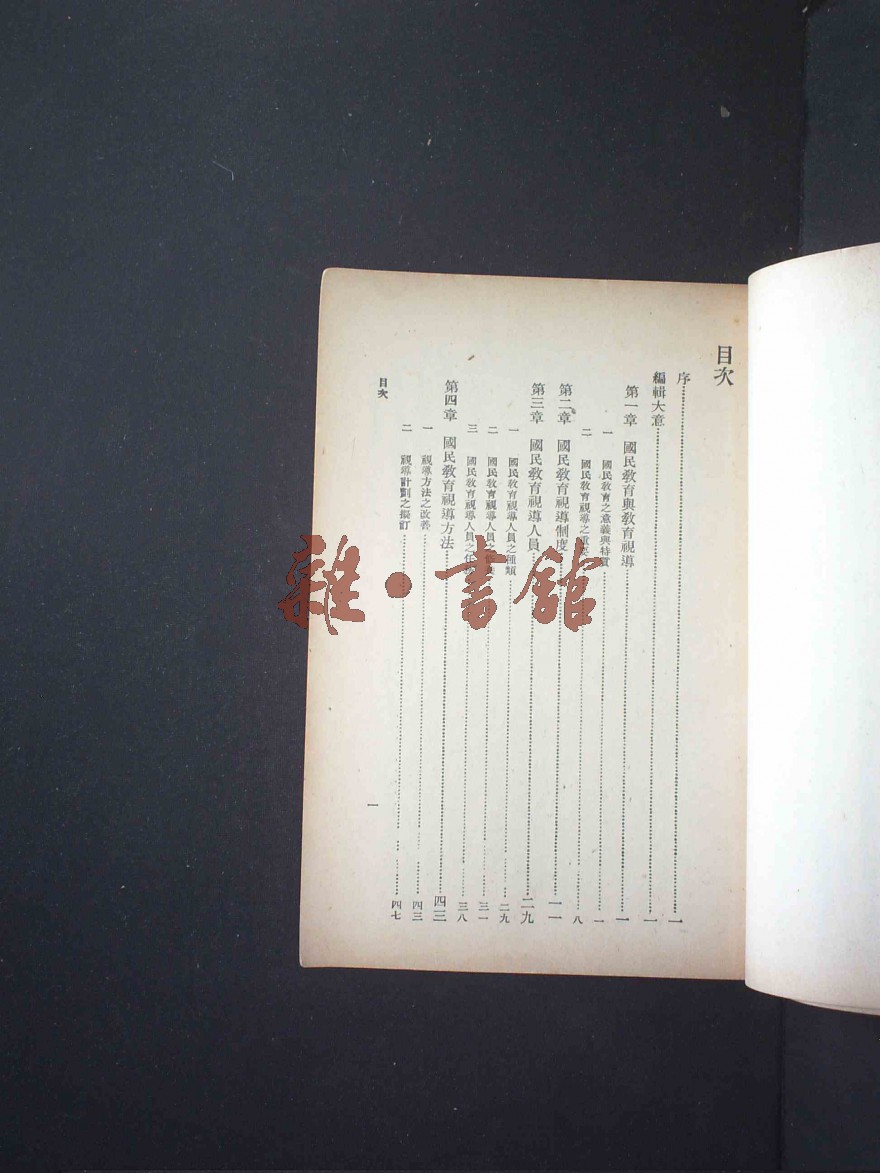 目次
序 一
編輯大意 一
第一章 國民教育與教育視導 一
一 國民教育之意義與特質 一
二 國民教育視導之重要 八
第二章 國民教育視導制度 一一
第三章 國民教育視導人員 二九
一 國民教育視導人員之種類 二九
二 國民教育視導人員之 三一
三 國民教育視導人員之任 三八
第四章 國民教育視導方法 四三
一 視導方法之改善 四三
二 視導計劃之擬訂 四七
目次
一
雜·書館